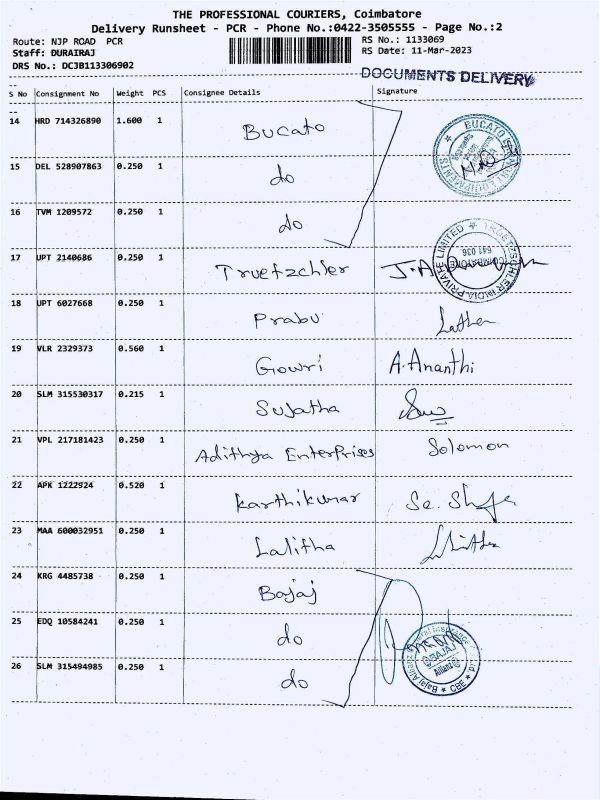 THE PROFESSIONAL COURIERS, Coimbatore
Delivery Runsheet - PCR - Phone No.:0422-3505555 - Page No.:2
Route: NJP ROAD PCR
RS No.: 1133069
Staff: DURAIRAJ
RS Date: 11-Mar-2023
DRS No.: DCJB113306902
DOCUMENTS DELIVERY
S No Consignment No Weight PCS Consignee Details Signature
14 HRD 714326890 1.600 1 Bucato
BUCATO
15 DEL 528907863 0.250 1 do
16 TVM 1209572 0.250 1 do
17 UPT 2140686 0.250 1 Truetzchler
TRUETZSCHLER INDIA PRIVATE LIMITED
COIMBATORE
641 036
18 UPT 6027668 0.250 1 Prabu
19 VLR 2329373 0.560 1 Gowri A. Ananthi
20 SLM 315530317 0.215 1 Sujatha
21 VPL 217181423 0.250 1 Adithya Enterprises Solomon
22 APK 1222924 0.520 1 Karthikumar
23 MAA 600032951 0.250 1 Lalitha
24 KRG 4485738 0.250 1 Bajaj
25 EDQ 10584241 0.250 1 do
26 SLM 315494985 0.250 1 do
Bajaj Allianz General Insurance
BAJAJ
Allianz
CBE